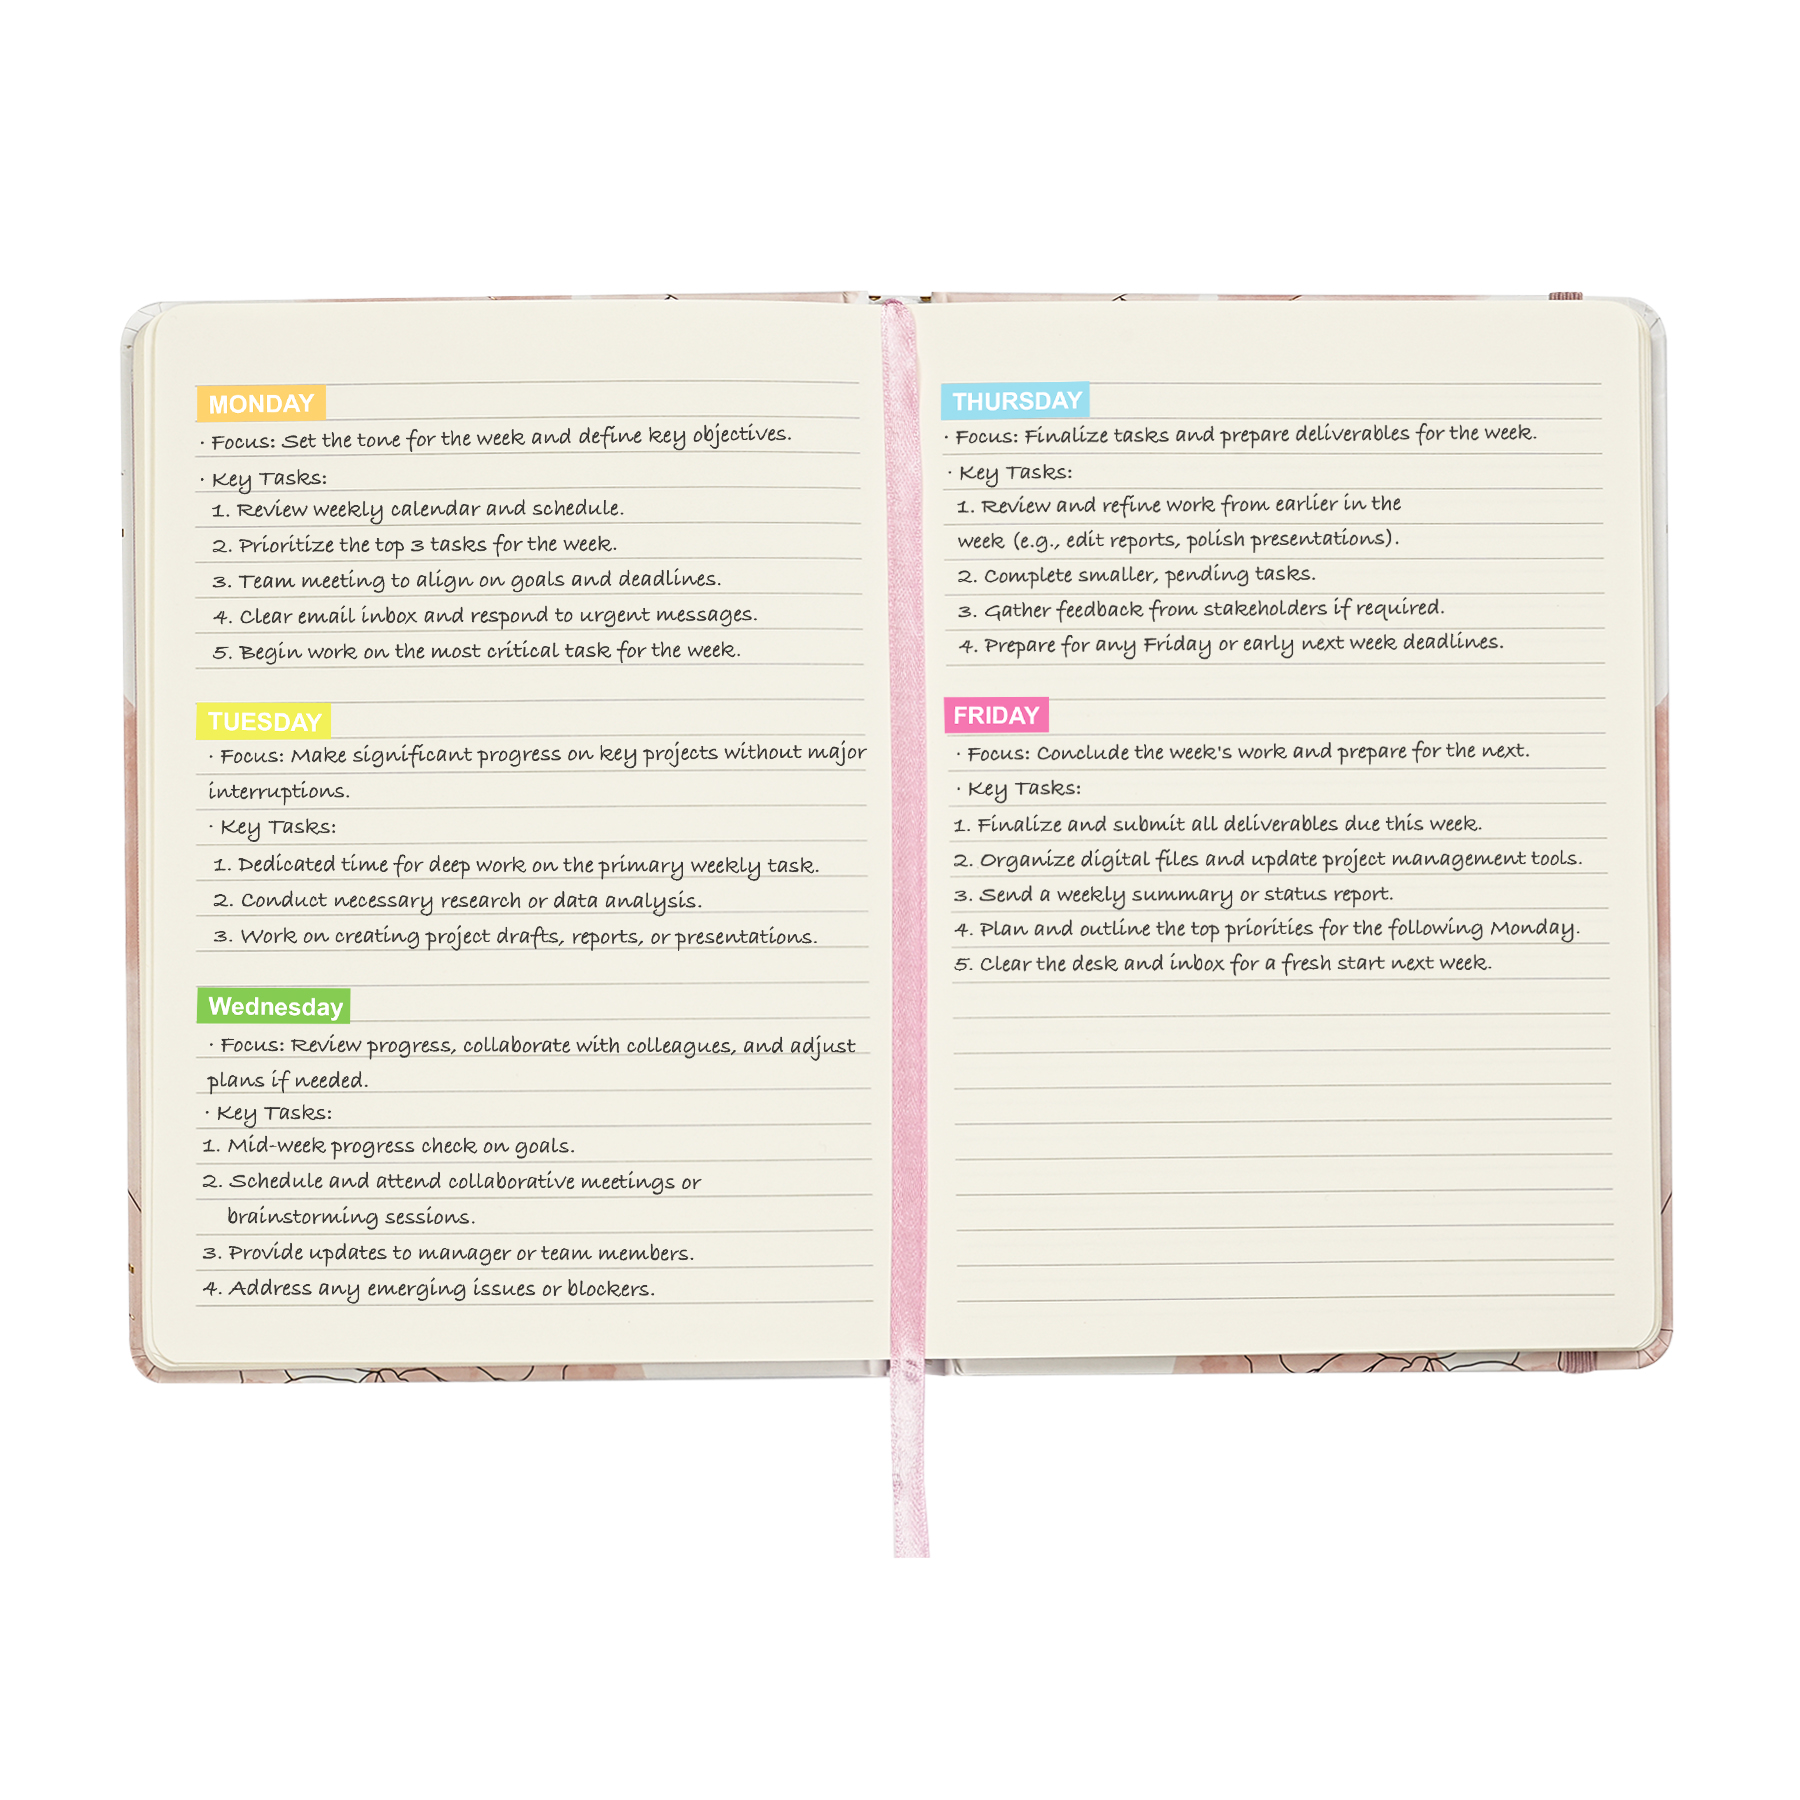 MONDAY
· Focus: Set the tone for the week and define key objectives.
· Key Tasks:
1. Review weekly calendar and schedule.
2. Prioritize the top 3 tasks for the week.
3. Team meeting to align on goals and deadlines.
4. Clear email inbox and respond to urgent messages.
5. Begin work on the most critical task for the week.
TUESDAY
· Focus: Make significant progress on key projects without major
interruptions.
· Key Tasks:
1. Dedicated time for deep work on the primary weekly task.
2. Conduct necessary research or data analysis.
3. Work on creating project drafts, reports, or presentations.
Wednesday
· Focus: Review progress, collaborate with colleagues, and adjust
plans if needed.
· Key Tasks:
1. Mid-week progress check on goals.
2. Schedule and attend collaborative meetings or
brainstorming sessions.
3. Provide updates to manager or team members.
4. Address any emerging issues or blockers.
THURSDAY
· Focus: Finalize tasks and prepare deliverables for the week.
· Key Tasks:
1. Review and refine work from earlier in the
week (e.g., edit reports, polish presentations).
2. Complete smaller, pending tasks.
3. Gather feedback from stakeholders if required.
4. Prepare for any Friday or early next week deadlines.
FRIDAY
· Focus: Conclude the week's work and prepare for the next.
· Key Tasks:
1. Finalize and submit all deliverables due this week.
2. Organize digital files and update project management tools.
3. Send a weekly summary or status report.
4. Plan and outline the top priorities for the following Monday.
5. Clear the desk and inbox for a fresh start next week.